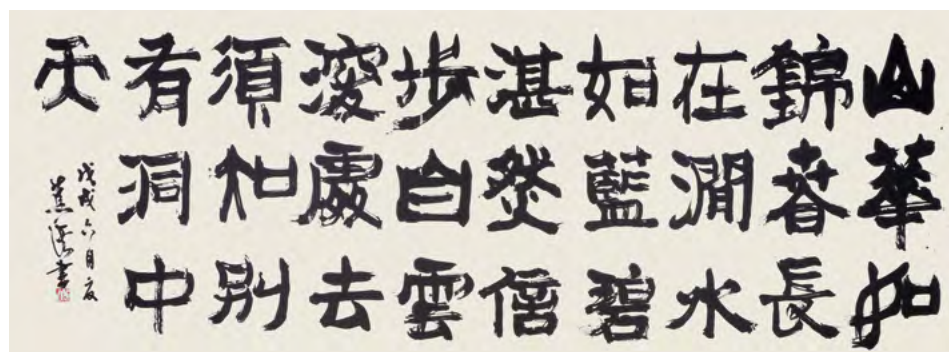 山華如
錦春長
在澗水
如藍碧
湛然信
步白雲
深處去
須知別
有洞中
天
戊戌六月
書